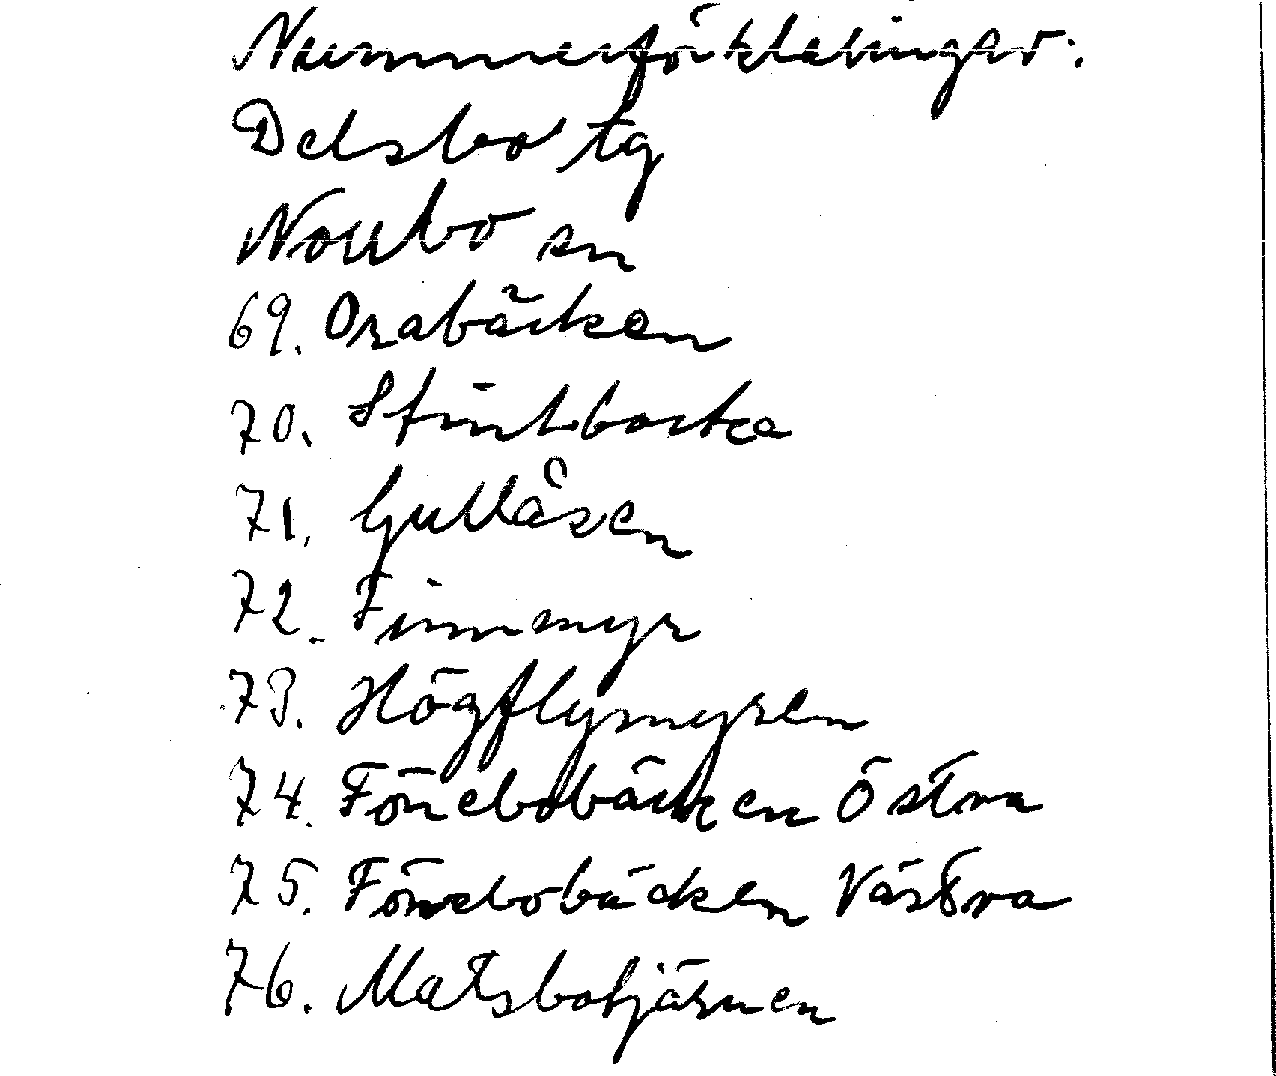 Nummerförklaringar:
Delsbo tg
Norrbo sn
69. Orabäcken
70. Stintbacka
71. Gullåsen
72. Finnmyr
73. Högflymyren
74. Fönebobäcken Östra
75. Fönebobäcken Västra
76. Matsbotjärnen